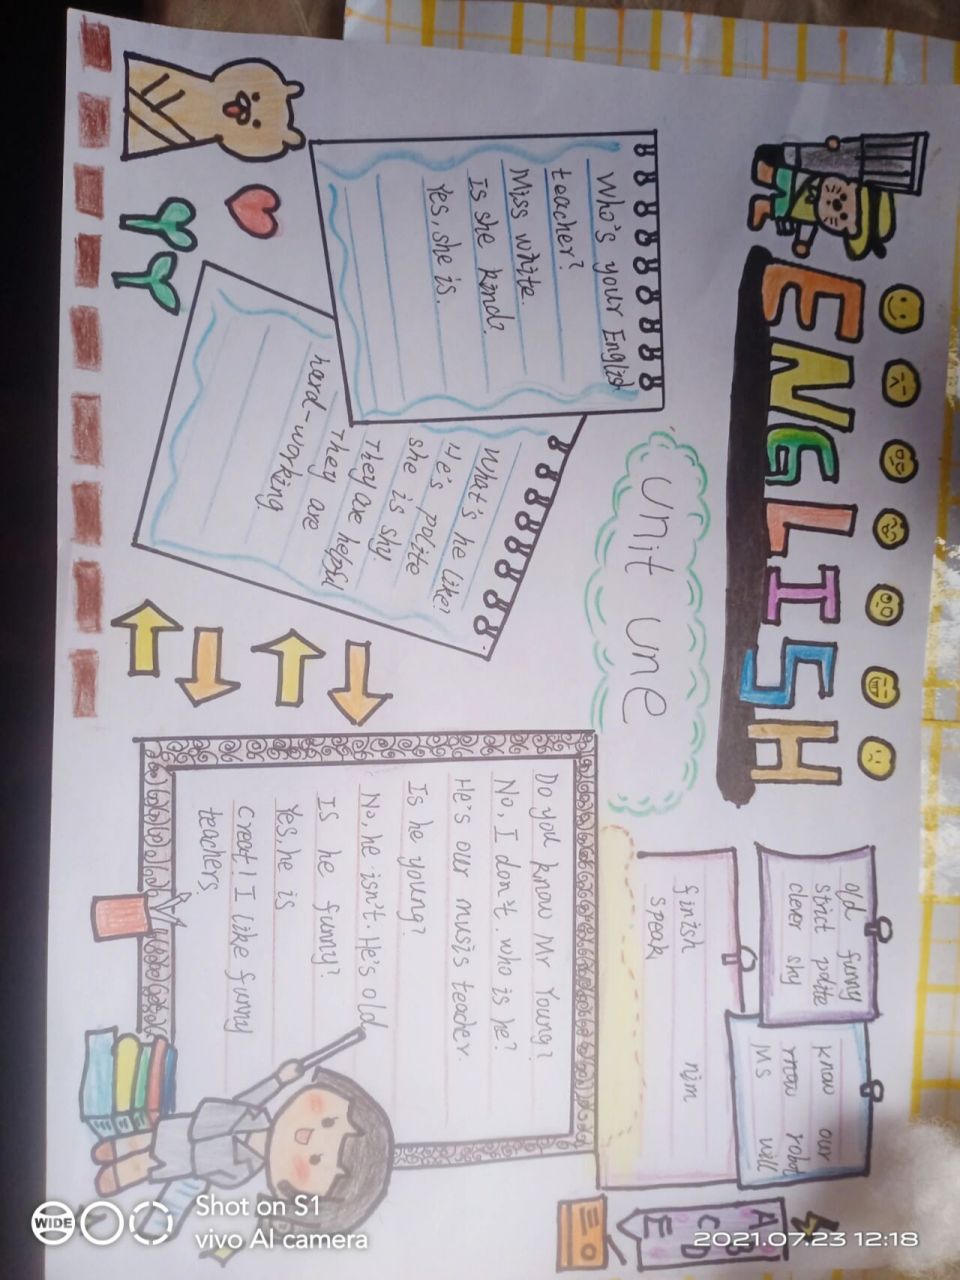 ENGLISH
unit une
Who's your English
teacher?
Miss white.
Is she kind?
Yes, she is.
What's he like?
He's polite
she is shy.
They are helpful
they are
hard-working.
old funny
strict polite
clever shy
know our
robot
Ms will
finish
speak
Do you know Mr Young?
No, I don't. who is he?
He's our music teacher.
Is he young?
No, he isn't. He's old
Is he funny?
Yes, he is
Creat! I like funny
teachers.
A B
C D
E
WIDE
Shot on S1
vivo AI camera
2021.07.23 12:18